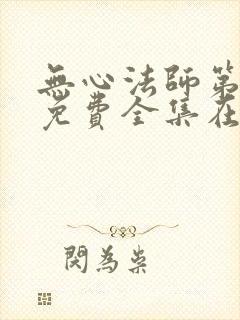 無心法師第
免費全集在
閱為枭